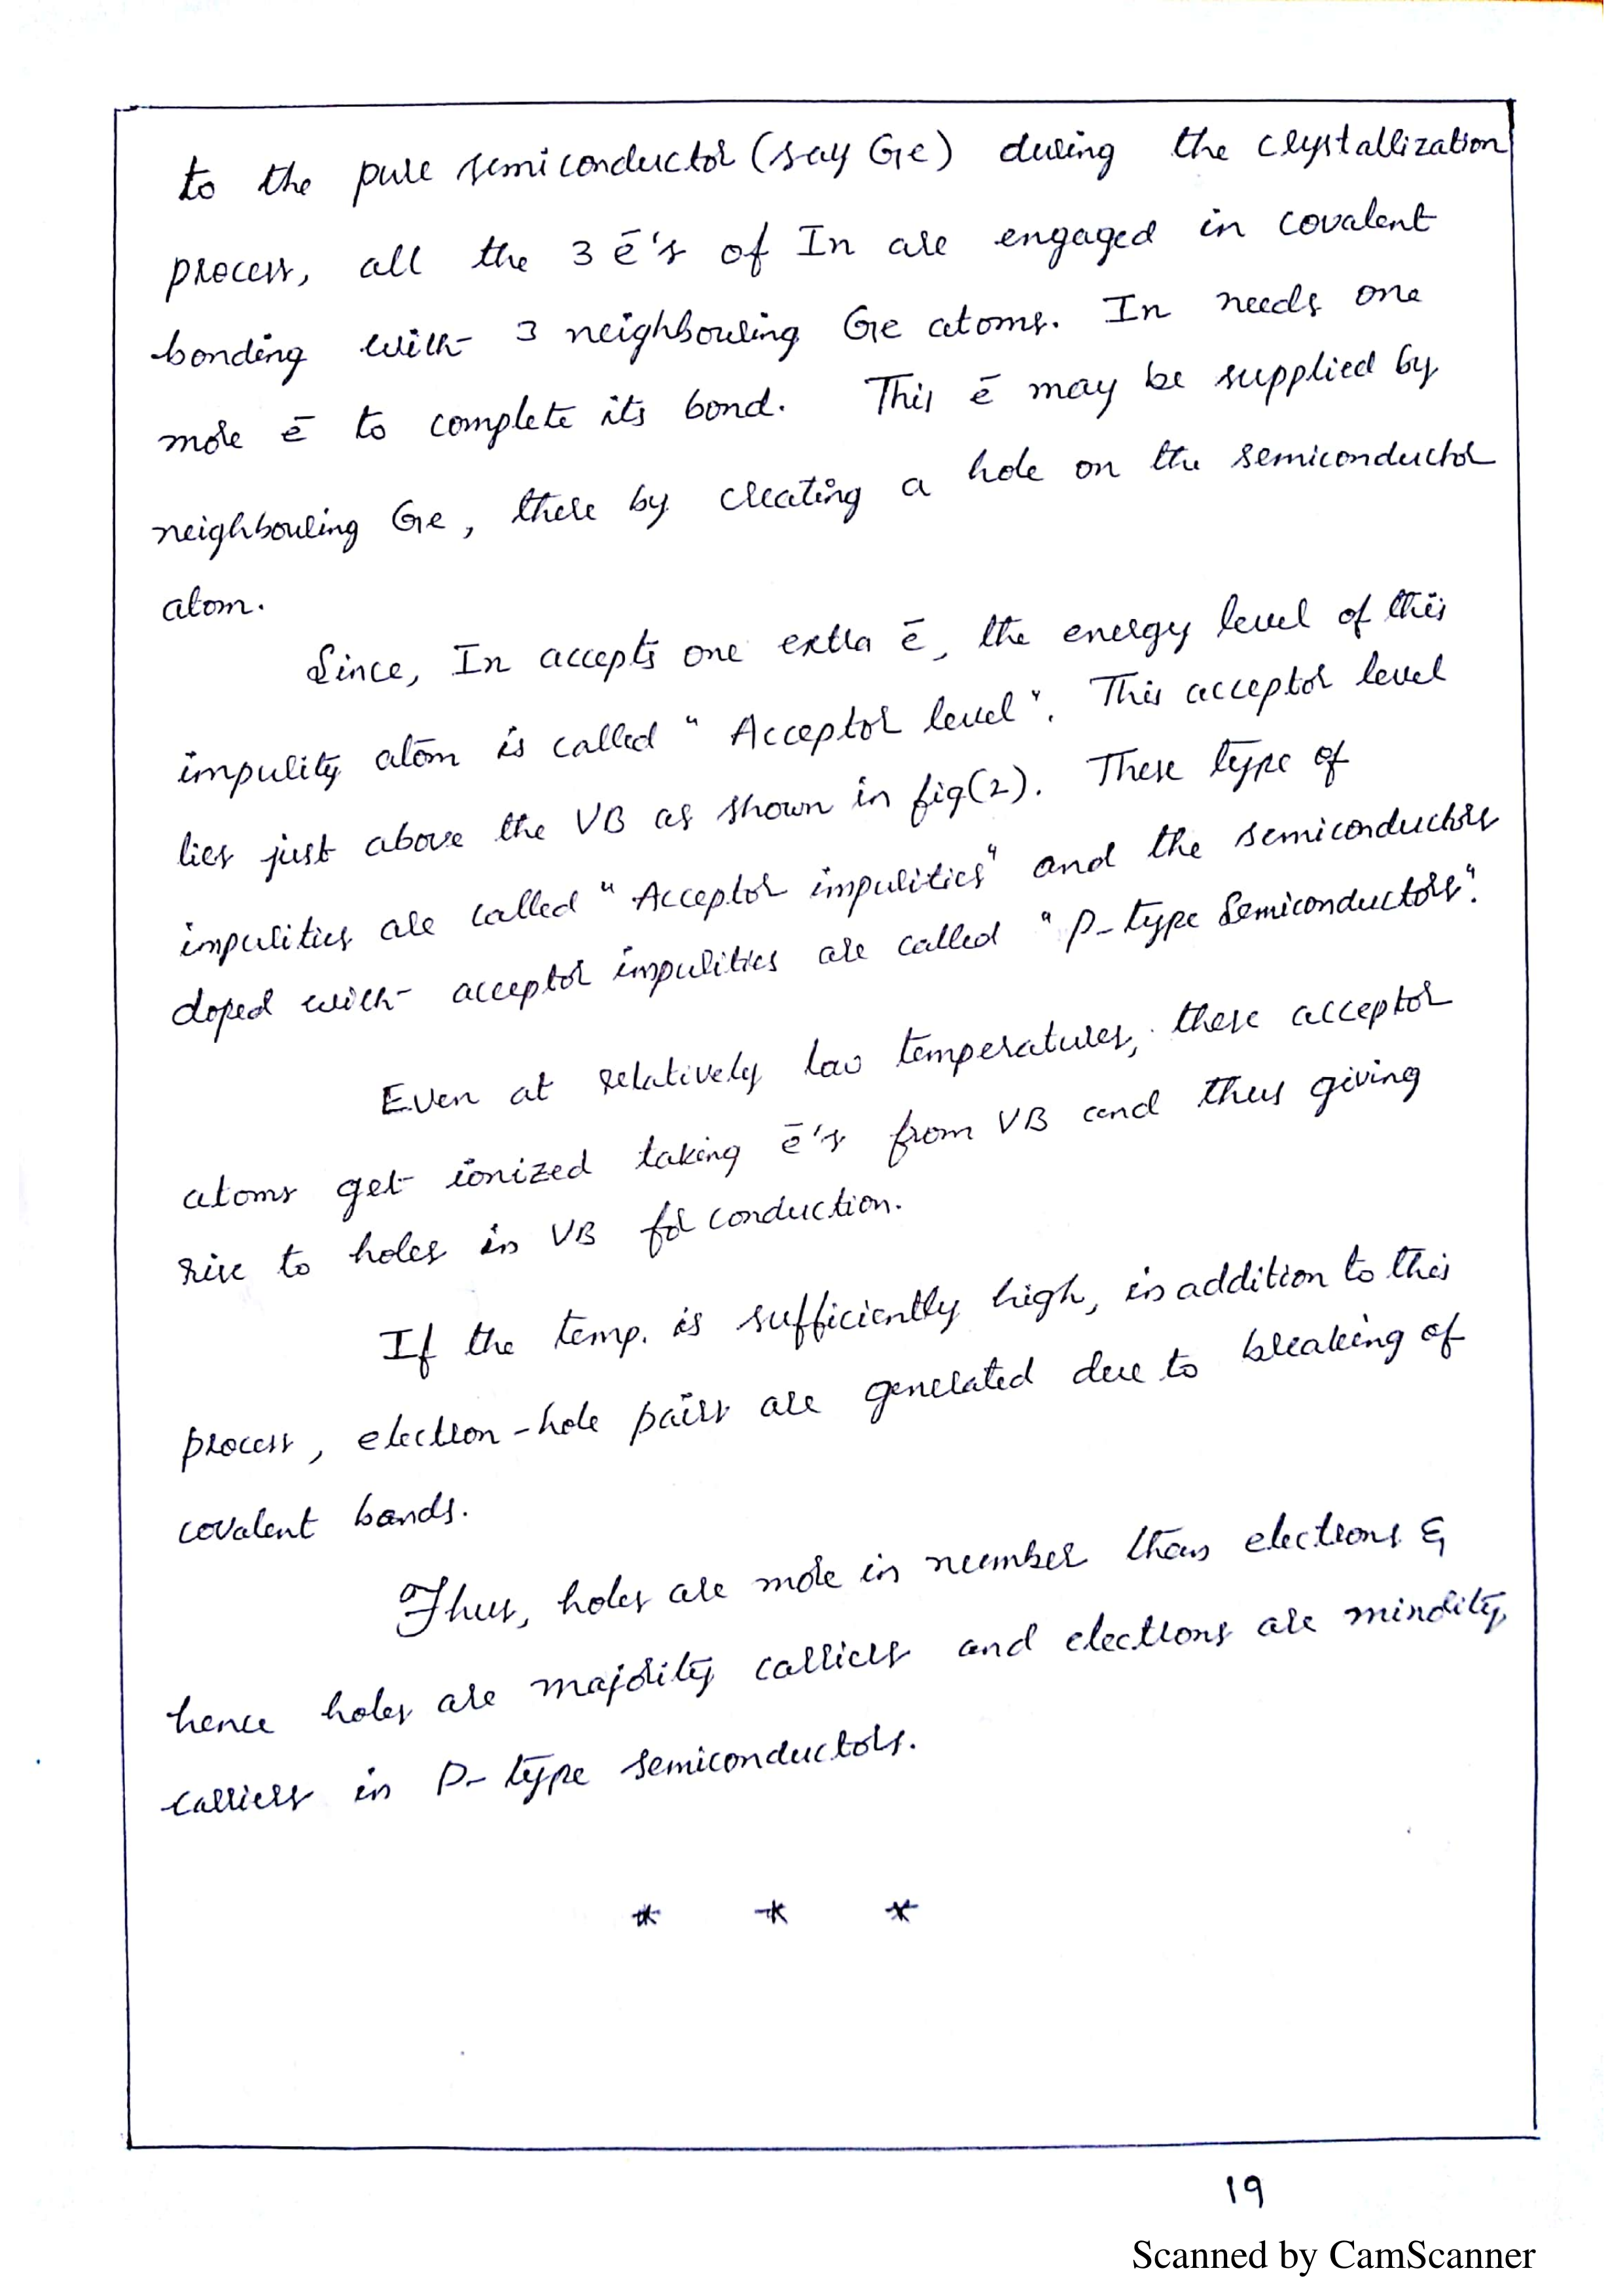 to the pure semiconductor (say Ge) during the crystallization
process, all the 3 ē's of In are engaged in covalent
bonding with 3 neighbouring Ge atoms. In needs one
more ē to complete its bond. This ē may be supplied by
neighbouring Ge, there by creating a hole on the semiconductor
atom.
Since, In accepts one extra ē, the energy level of this
impurity atom is called "Acceptor level". This acceptor level
lies just above the VB as shown in fig(2). These type of
impurities are called "Acceptor impurities" and the semiconductors
doped with acceptor impurities are called "P-type Semiconductors".
Even at relatively low temperatures, these acceptor
atoms get ionized taking ē's from VB and thus giving
rise to holes in VB for conduction.
If the temp. is sufficiently high, in addition to this
process, electron-hole pairs are generated due to breaking of
covalent bands.
Thus, holes are more in number than electrons &
hence holes are majority carriers and electrons are minority
carriers in P-type semiconductors.
* * *
19
Scanned by CamScanner